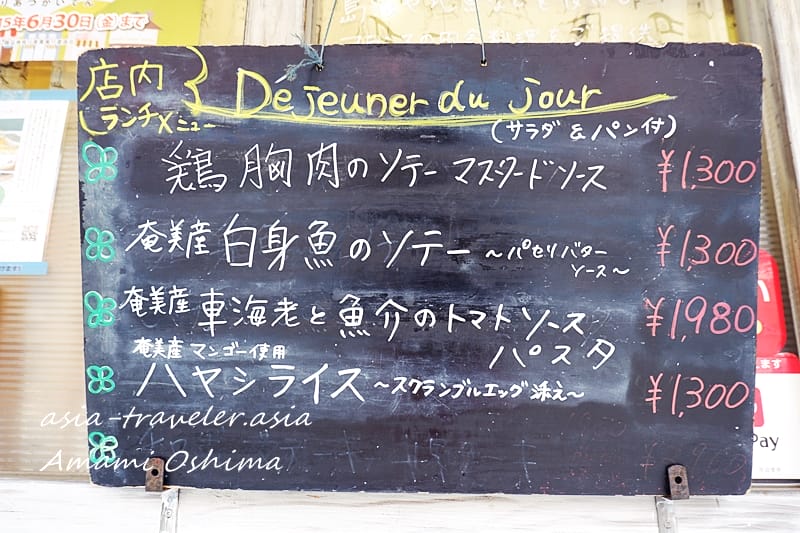 5年6月30日(金)まで
店内
ランチメニュー
Déjeuner du jour
(サラダ & パン付)
鶏胸肉のソテー マスタードソース ¥1,300
奄美産 白身魚のソテー ~パセリバターソース~ ¥1,300
奄美産 車海老と魚介のトマトソース パスタ ¥1,980
奄美産 マンゴー使用
ハヤシライス ~スクランブルエッグ添え~ ¥1,300
asia-traveler.asia
Amami Oshima
Pay